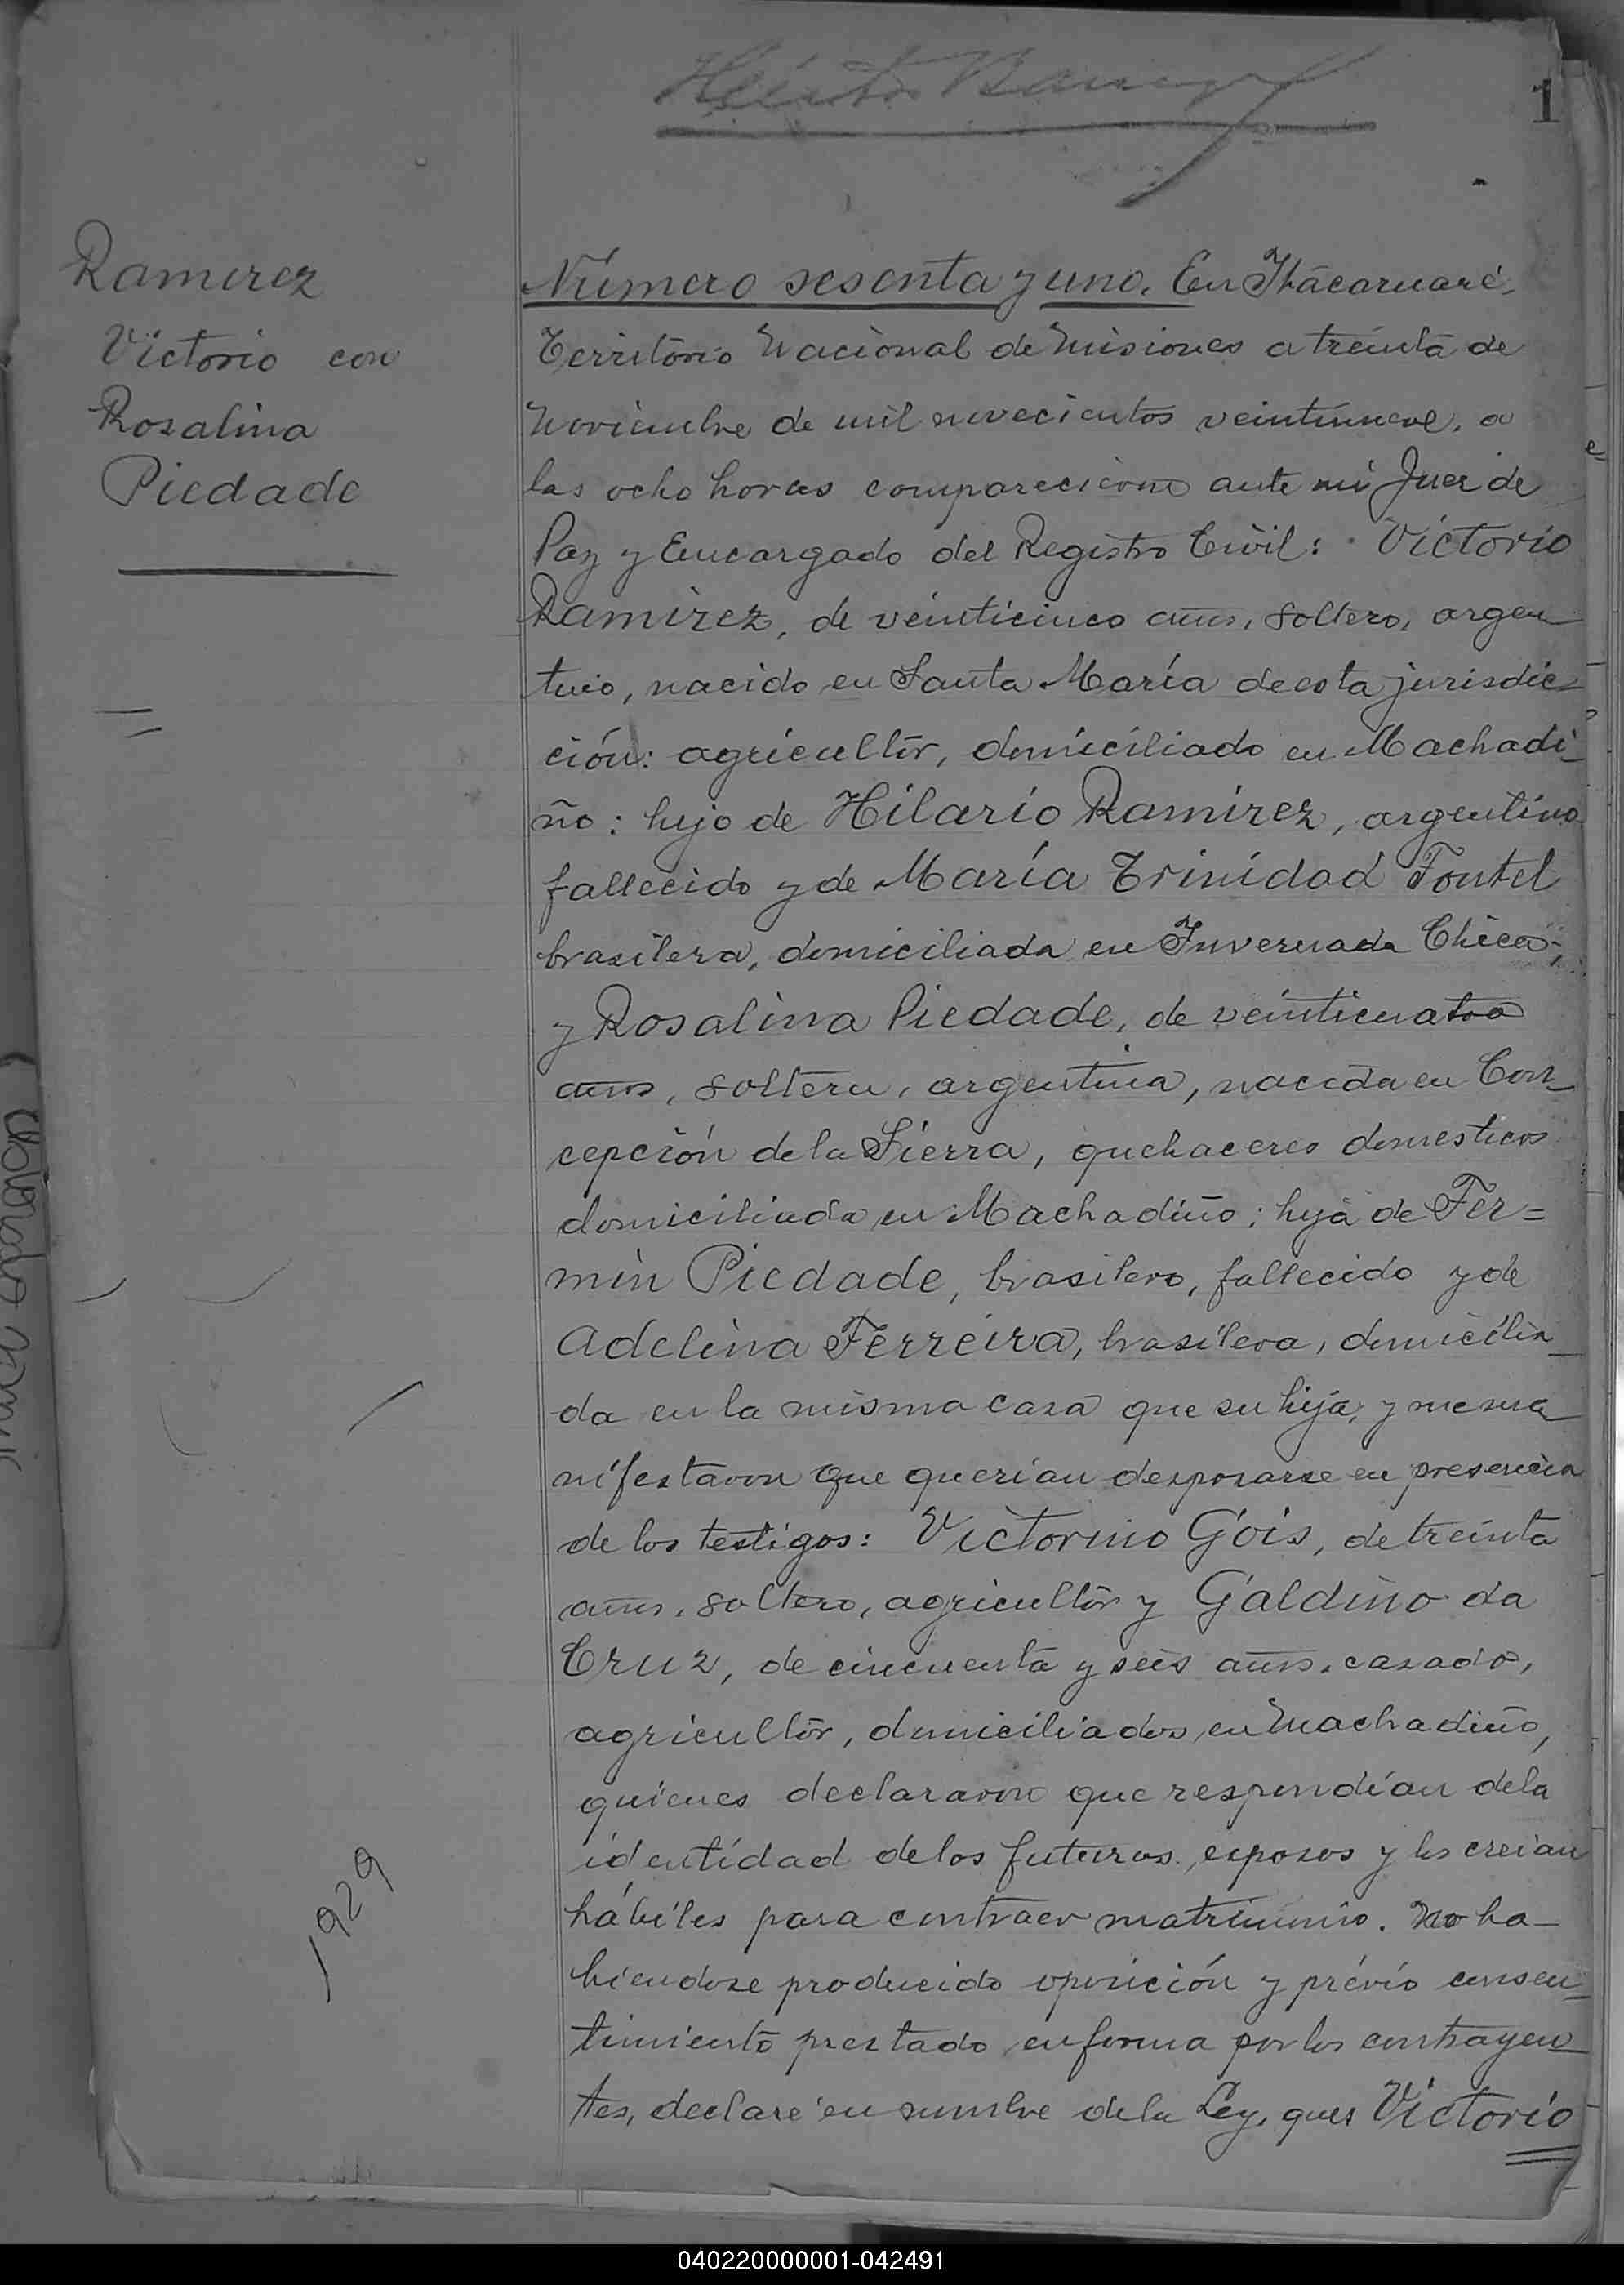 1
Ramirez
Victorio con
Rosalina
Piedade
1929
Número sesenta y uno. En Itacaruaré,
Território Nacional de Misiones a treinta de
Noviembre de mil novecientos veintinueve, a
las ocho horas comparecieron ante mi Juez de
Paz y Encargado del Registro Civil: Victorio
Ramirez, de veinticinco años, soltero, argen
tino, nacido en Santa María de esta jurisdic-
ción: agricultor, domiciliado en Machadi-
ño: hijo de Hilario Ramirez, argentino
fallecido y de María Trinidad Foutel
brasilera, domiciliada en Invernada Chica;
y Rosalina Piedade, de veinticuatro
años, soltera, argentina, nacida en Con-
cepción de la Sierra, quehaceres domesticos
domiciliada en Machadiño; hija de Fer=
min Piedade, brasilero, fallecido y de
Adelina Ferreira, brasilera, domicilia-
da en la misma casa que su hija, y me ma-
nifestaron que querian desposarse en presencia
de los testigos: Victorino Góis, de treinta
años, soltero, agricultor y Galdino da
Cruz, de cincuenta y seis años, casado,
agricultor, domiciliados en Machadiño,
quienes declararon que respondían de la
identidad de los futuros esposos y los creian
hábiles para contraer matrimonio. No ha-
biendose producido oposición y prévio consen-
timiento prestado en forma por los contrayen-
tes, declaré en nombre de la Ley, que Victorio
040220000001-042491